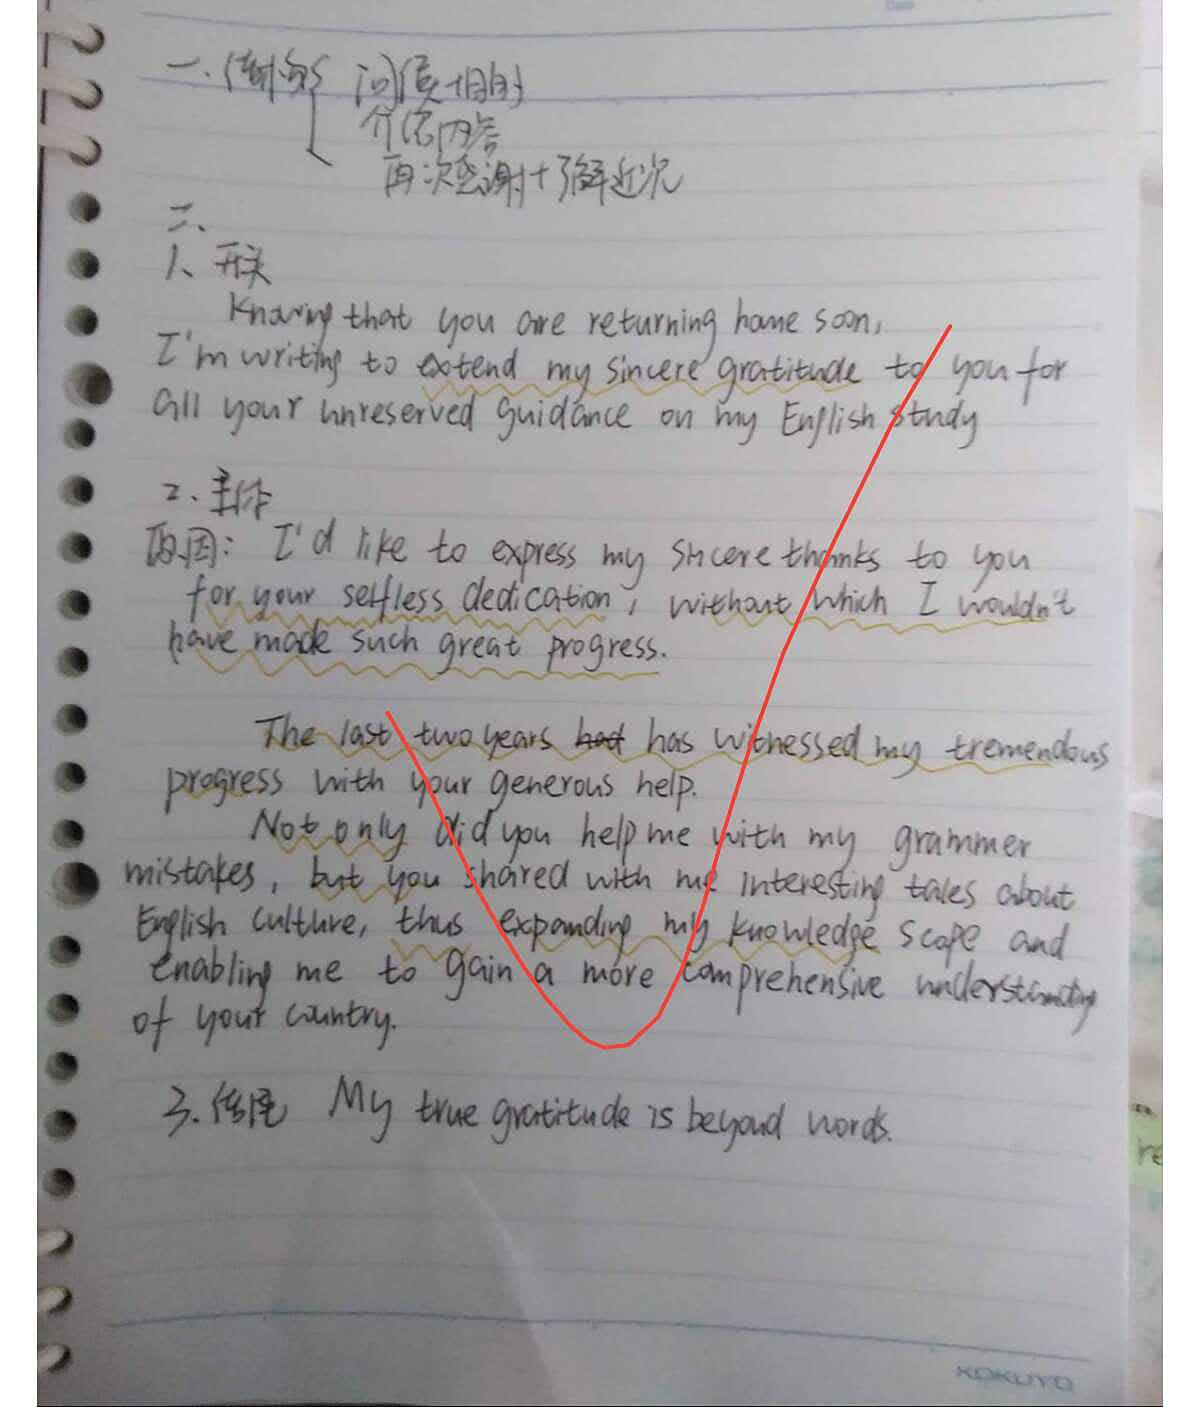 一. 结构
问候+目的
介绍内容
再次感谢+了解近况
二、
1、开头
Knowing that you are returning home soon,
I'm writing to extend my sincere gratitude to you for
all your unreserved guidance on my English study
2. 主体
原因: I'd like to express my sincere thanks to you
for your selfless dedication, without which I wouldn't
have made such great progress.
The last two years has witnessed my tremendous
progress with your generous help.
Not only did you help me with my grammer
mistakes, but you shared with me interesting tales about
English culture, thus expanding my knowledge scope and
enabling me to gain a more comprehensive understanding
of your country.
3. 结尾 My true gratitude is beyond words.
KOKUYO